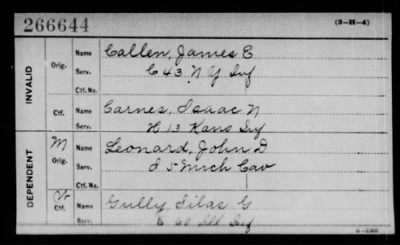 266644
(3-H-4)
INVALID
Orig.
Name Callen, James E
Serv. C 43 N Y Inf
Ctf. No.
Ctf.
Name Carnes, Isaac N
Serv. H 13 Kans Inf
DEPENDENT
M
Orig.
Name Leonard, John D
Serv. I 5 Mich Cav
Ctf. No.
Ctf.
Name Gully, Silas G
Serv. E 60 Ill Inf